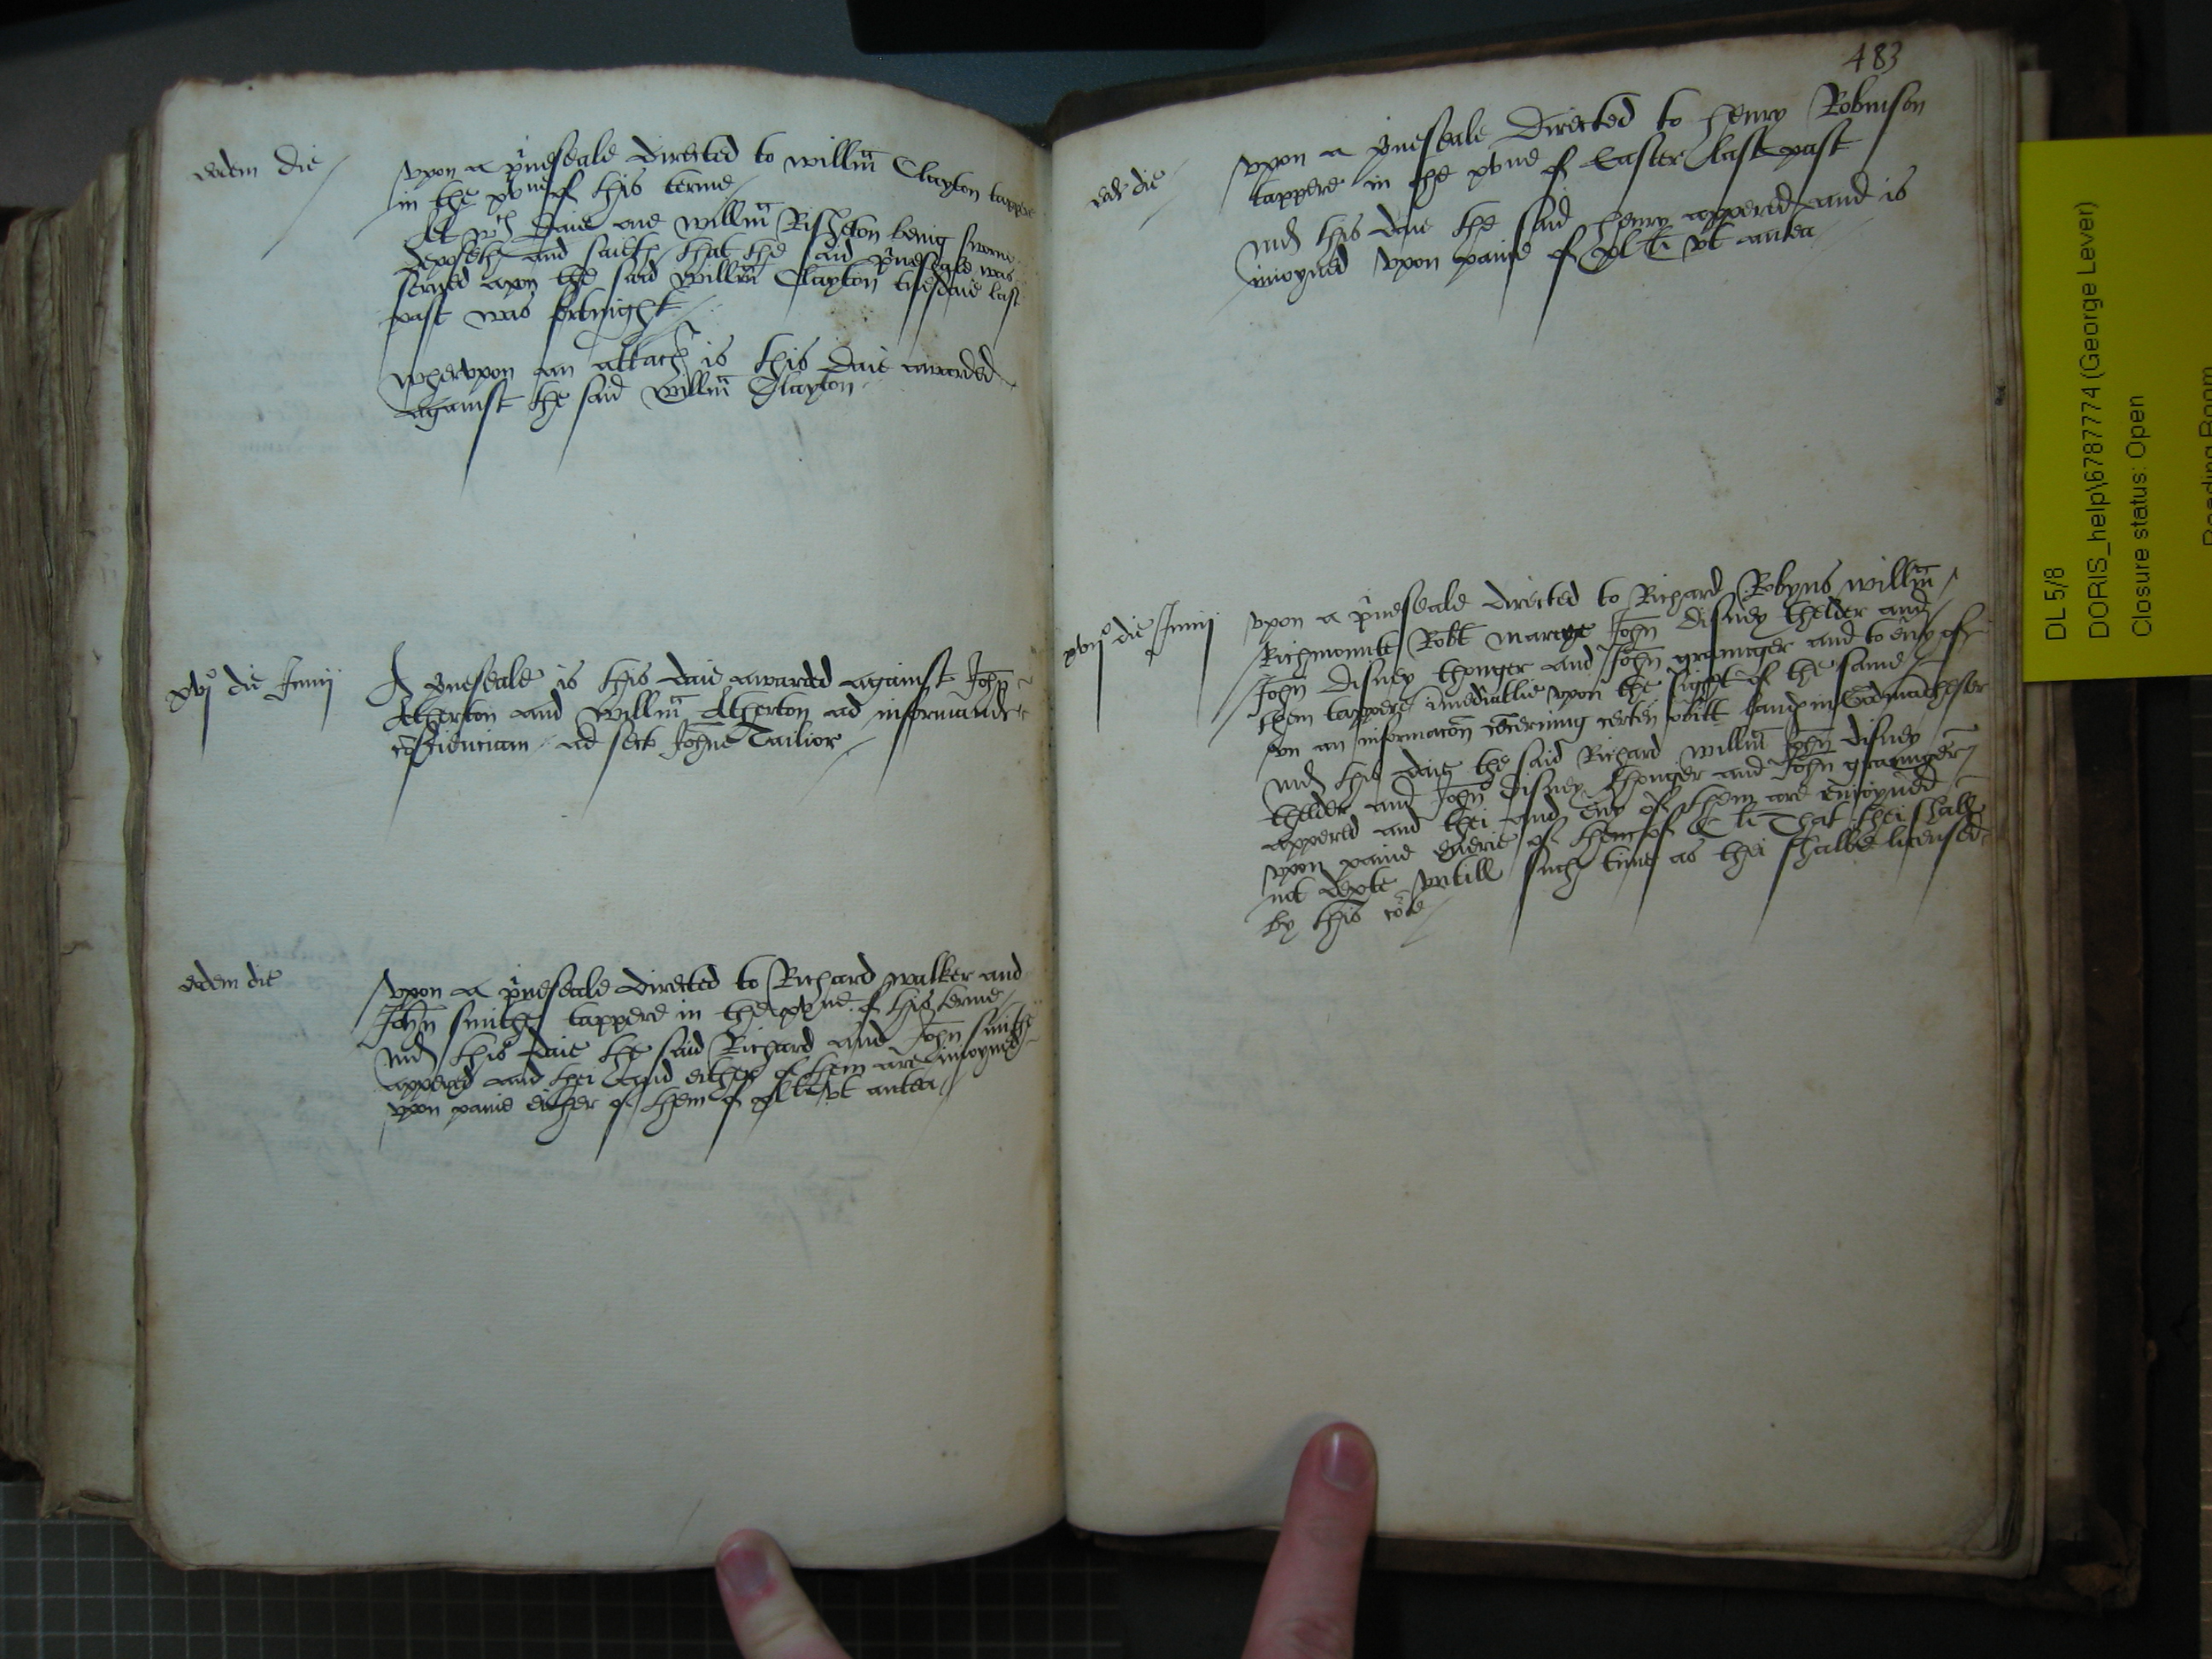 eodem die
vpon a p̄ueseale directed to willm̄ Clayton tappere
in the xvne of this terme
At wch daie one willm̄ Risheton being sworne
deposeth and saith that the said p̄ueseale was
serued apon the said willm̄ Clayton tuesdaie last
past was fortnight
whervpon an attach is this daie awarded
against the said willm̄ Clayton
xvjo die Junij
A p̄ueseale is this daie awarded against John
Atherton and willm̄ Atherton ad informand
cōscienciam ad sect Johne Tailior
eodem die
vpon a p̄ueseale directed to Richard walker and
John smithe tappere in the xvne of this terme
md this daie the said Richard and John smithe
appered and thei and either of them are inioyned
vpon paine either of them of xl li vt antea
483
eod die
vpon a p̄ueseale directed to henry Robinson
tappere in the xvne of Easter last past
md this daie the said henry appered and is
inioyned vpon paine of xl li vt antea
xvijo die Junij
vpon a p̄ueseale directed to Richard Robyns willm̄
Richmounte Robt John disney thelder and
John disney thonger and John graunger and to eūy of
them tappere īmediatlie vpon the sight of the same
on an informacōn cōcerninge certen obitt landes in Godmāchester
md this daie the said Richard willm̄ John disney
thelder and John disney thonger and John graunger
appered and thei and eūy of them are enioyned
vpon paine euerie of them of C li That thei shall
not depte vntill such time as thei shalbe licensed
by this cōrte
DL 5/8
DORIS_help\6787774 (George Lever)
Closure status: Open
Reading Room